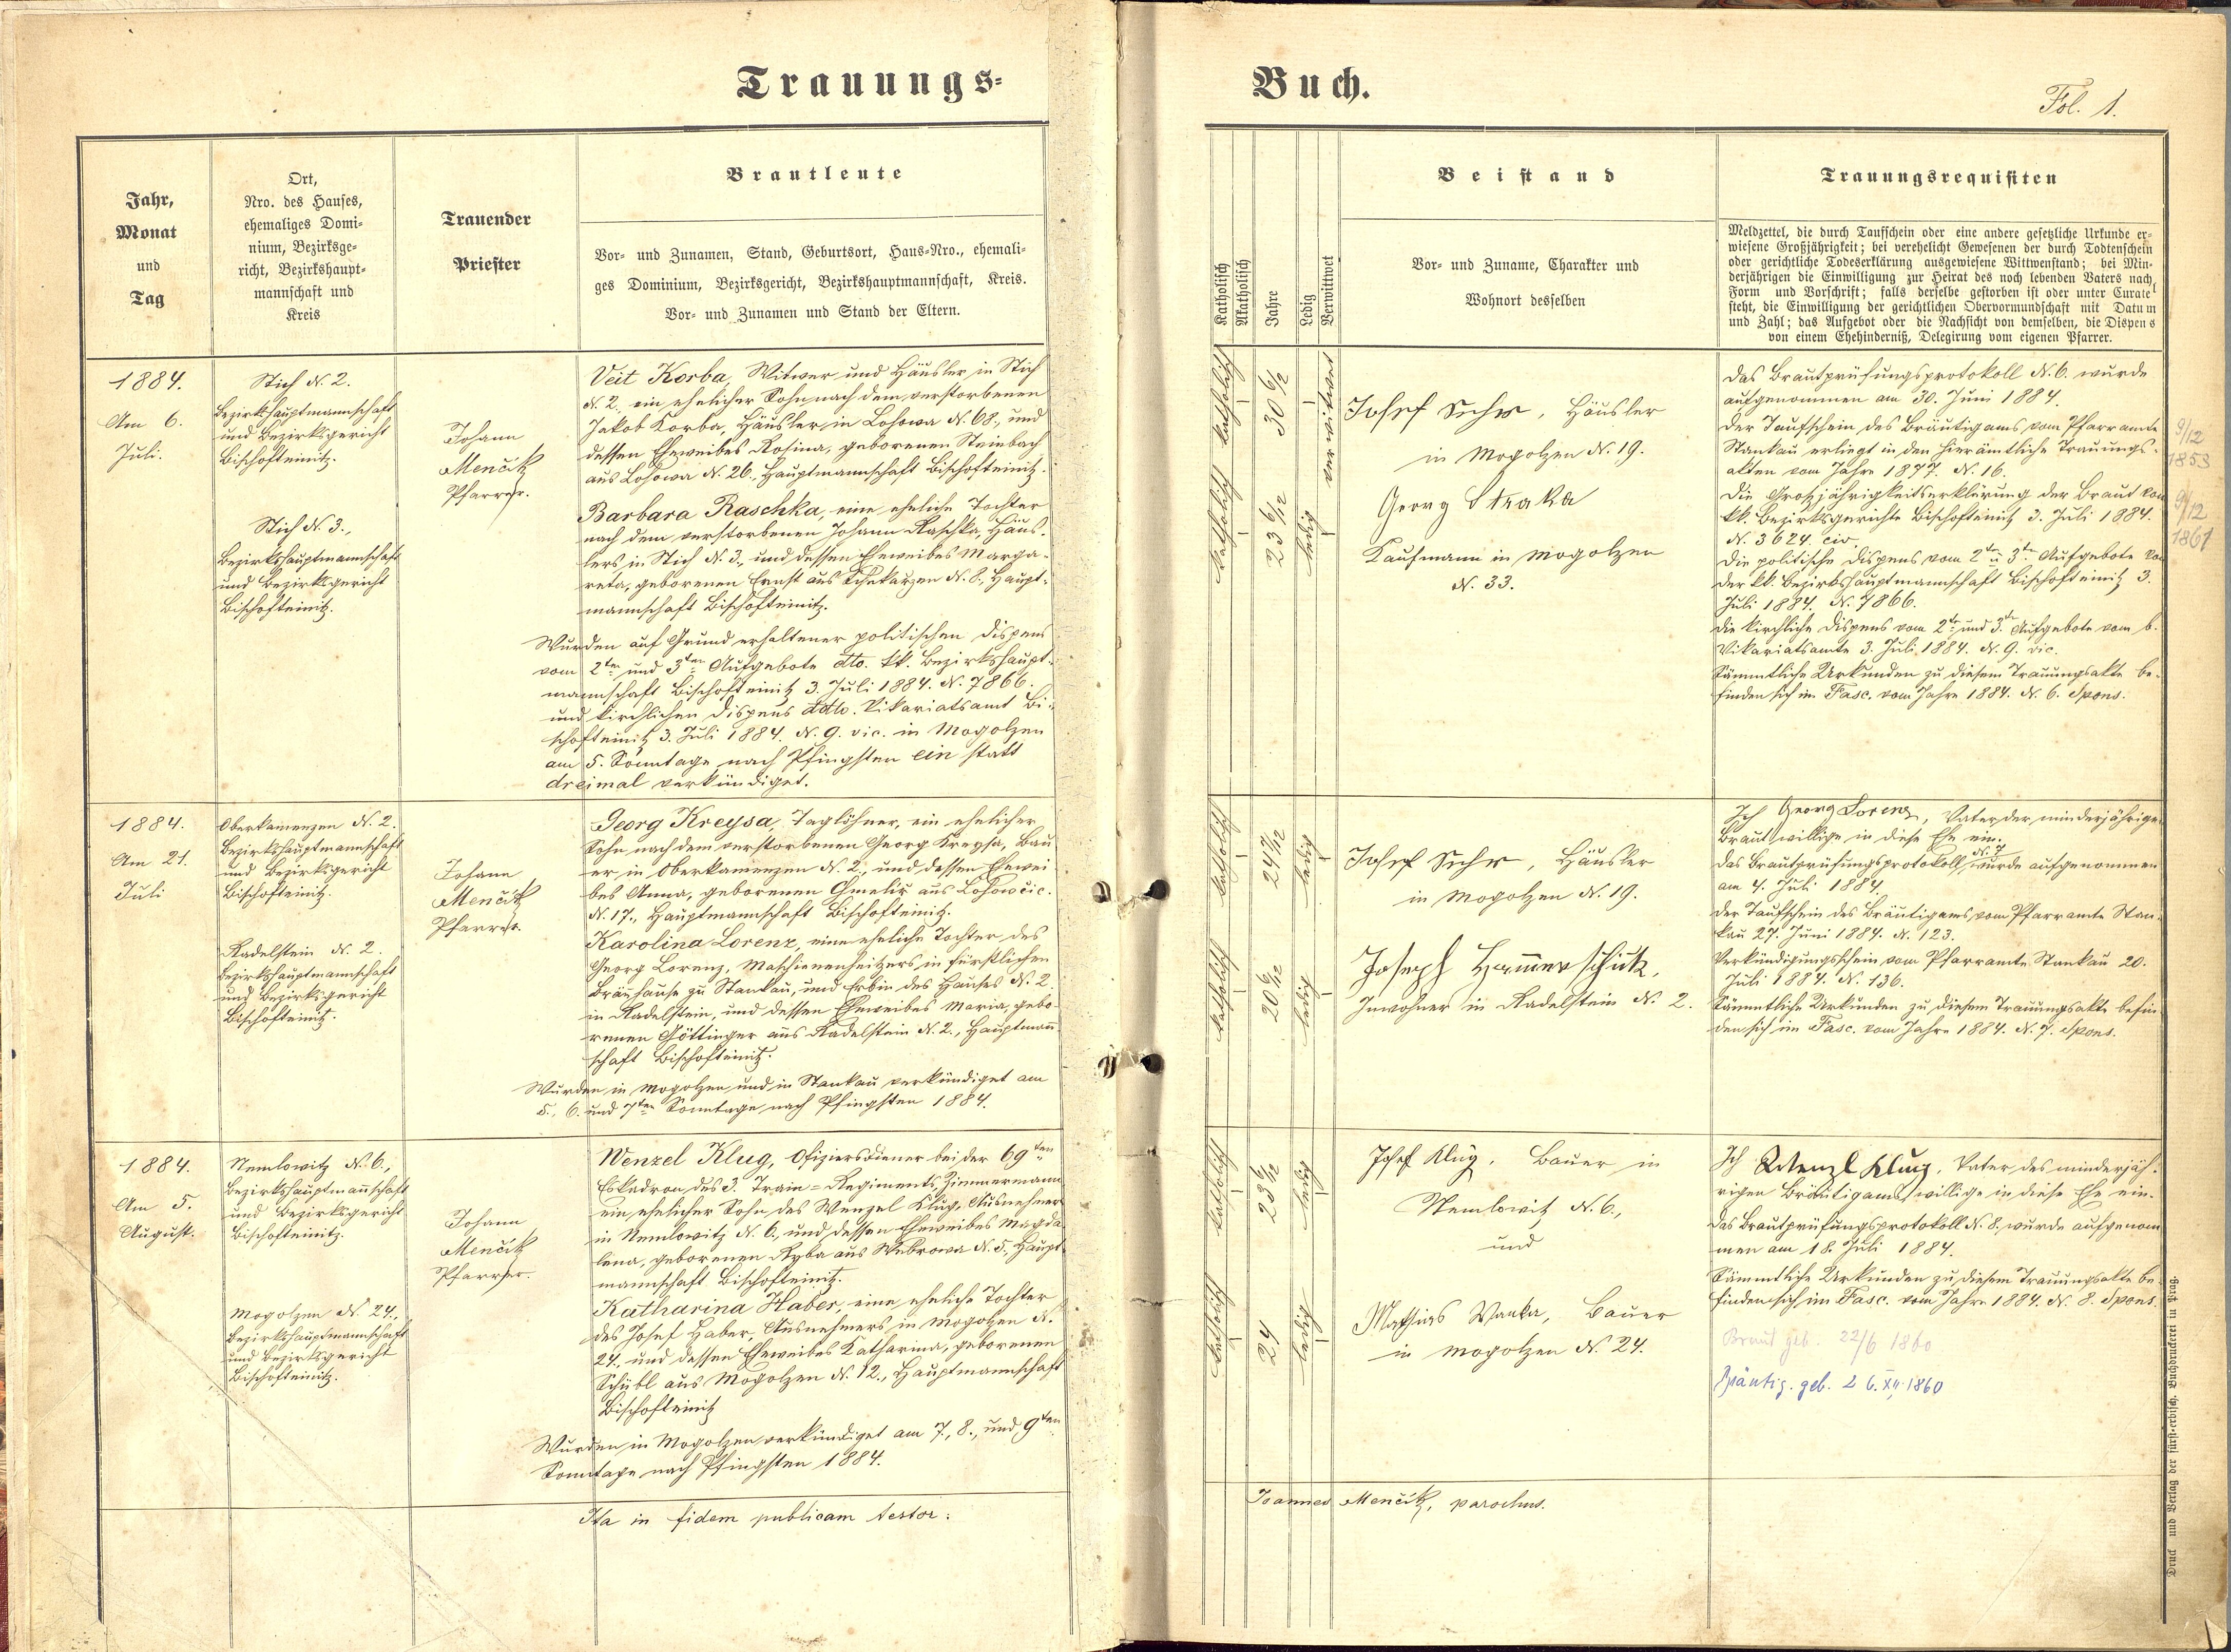 Trauungs-
Buch.
Fol. 1.
Jahr,
Monat
und
Tag
Ort,
Nro. des Hauses,
ehemaliges Domi-
nium, Bezirksge-
richt, Bezirkshaupt-
mannschaft und
Kreis
Trauender
Priester
Brautleute
Vor- und Zunamen, Stand, Geburtsort, Haus-Nro., ehemali-
ges Dominium, Bezirksgericht, Bezirkshauptmannschaft, Kreis.
Vor- und Zunamen und Stand der Eltern.
Katholisch
Akatholisch
Jahre
Ledig
Verwittwet
Beistand
Vor- und Zuname, Charakter und
Wohnort desselben
Trauungsrequisiten
Meldzettel, die durch Taufschein oder eine andere gesetzliche Urkunde er-
wiesene Großjährigkeit; bei verehelicht Gewesenen der durch Todtenschein
oder gerichtliche Todeserklärung ausgewiesene Wittwenstand; bei Min-
derjährigen die Einwilligung zur Heirat des noch lebenden Vaters nach
Form und Vorschrift; falls derselbe gestorben ist oder unter Curatel
steht, die Einwilligung der gerichtlichen Obervormundschaft mit Datum
und Zahl; das Aufgebot oder die Nachsicht von demselben, die Dispens
von einem Ehehinderniß, Delegirung vom eigenen Pfarrer.
1884.
Am 6.
Juli.
Stich N. 2.
Bezirkshauptmannschaft
und Bezirksgericht
Bischofteinitz.
Stich N. 3.,
Bezirkshauptmannschaft
und Bezirksgericht
Bischofteinitz.
Johann
Menčik
Pfarrer.
Veit Korba, Witwer und Häusler in Stich
N. 2., ein ehelicher Sohn nach dem verstorbenen
Jakob Korba, Häusler in Lohowa N. 68., und
dessen Eheweibes Rosina, geborenen Steinbach
aus Lohowa N. 26., Hauptmannschaft Bischofteinitz.
Barbara Raschka, eine eheliche Tochter
nach dem verstorbenen Johann Raschka, Häus-
lers in Stich N. 3., und dessen Eheweibes Marga-
reta, geborenen Ernst aus N. 8., Haupt-
mannschaft Bischofteinitz.
Wurden auf Grund erhaltener politischen Dispens
vom 2ten und 3ten Aufgebote dto. kk. Bezirkshaupt-
mannschaft Bischofteinitz 3. Juli 1884. N. 7866.
und kirchlichen Dispens ddto. Vikariatsamt Bi-
schofteinitz 3. Juli 1884. N. 9. vic. in Mogolzen
am 5. Sonntage nach Pfingsten ein statt
dreimal verkündiget.
katholisch
30 6/12
verwitwet
katholisch
23 6/12
ledig
Josef Suhr, Häusler
in Mogolzen N. 19.
Georg Straka
Kaufmann in Mogolzen
N. 33.
Das Brautprüfungsprotokoll N. 6. wurde
aufgenommen am 30. Juni 1884.
Der Taufschein des Bräutigams vom Pfarramte
Stankau erliegt in den hierämtliche Trauungs-
akten vom Jahre 1877. N. 16.
Die Großjährigkeitserklärung der Braut von
kk. Bezirksgerichte Bischofteinitz 3. Juli 1884.
N. 3624. civ.
Die politische Dispens vom 2ten u 3ten Aufgebote von
der kk. Bezirkshauptmannschaft Bischofteinitz 3.
Juli 1884. N. 7866.
Die kirchliche Dispens vom 2ten und 3ten Aufgebote vom b.
Vikariatsamte 3. Juli 1884. N. 9. vic.
Sämmtliche Urkunden zu diesem Trauungsakte be-
finden sich im Fasc. vom Jahre 1884. N. 6. Spons.
9/12
1853
9/12
1861
1884.
Am 21.
Juli
Oberkamenzen N. 2.
Bezirkshauptmannschaft
und Bezirksgericht
Bischofteinitz.
Radelstein N. 2.
Bezirkshauptmannschaft
und Bezirksgericht
Bischofteinitz.
Johann
Menčik
Pfarrer.
Georg Kreysa, Taglöhner, ein ehelicher
Sohn nach dem verstorbenen Georg Kreysa, Bau-
er in Oberkamenzen N. 2., und dessen Ehewei-
bes Anna, geborenen Chmelir aus Lohowčic.
N. 17., Hauptmannschaft Bischofteinitz.
Karolina Lorenz, eine eheliche Tochter des
Georg Lorenz, Maschienenheitzers in fürstlichen
Bräuhause zu Stankau, und Erbin des Hauses N. 2.
in Radelstein, und dessen Eheweibes Maria, gebo-
renen Göttinger aus Radelstein N. 2., Hauptmann-
schaft Bischofteinitz.
Wurden in Mogolzen und in Stankau verkündiget am
5., 6. und 7ten Sonntage nach Pfingsten 1884.
katholisch
24 7/12
ledig
katholisch
20 6/12
ledig
Josef Suhr, Häusler
in Mogolzen N. 19.
Joseph Hammerschick,
Inwohner in Radelstein N. 2.
Ich Georg Lorenz, Vater der minderjährigen
Braut willige in diese Ehe ein.
Das Brautprüfungsprotokoll N. 7 wurde aufgenommen
am 4. Juli 1884.
Der Taufschein des Bräutigams vom Pfarramte Stan-
kau 27. Juni 1884. N. 123.
Verkündigungsschein vom Pfarramte Stankau 20.
Juli 1884. N. 136.
Sämmtliche Urkunden zu diesem Trauungsakte befin-
den sich im Fasc. vom Jahre 1884. N. 7. Spons.
1884.
Am 5.
August.
Nemlowitz N. 6.,
Bezirkshauptmannschaft
und Bezirksgericht
Bischofteinitz.
Mogolzen N. 24.,
Bezirkshauptmannschaft
und Bezirksgericht
Bischofteinitz.
Johann
Menčik
Pfarrer.
Wenzel Klug, Ofiziersdiener bei der 69ten
Eskadron des 3. Train-Regiments, Zimmermann
ein ehelicher Sohn des Wenzel Klug, Ausnehmer
in Nemlowitz N. 6., und dessen Eheweibes Magda-
lena, geborenen Ryba aus Webrowa N. 5., Haupt-
mannschaft Bischofteinitz.
Katharina Haber, eine eheliche Tochter
des Josef Haber, Ausnehmers in Mogolzen N.
24., und dessen Eheweibes Katharina, geborenen
Schübl aus Mogolzen N. 12., Hauptmannschaft
Bischofteinitz
Wurden in Mogolzen verkündiget am 7., 8., und 9ten
Sonntage nach Pfingsten 1884.
katholisch
ledig
katholisch
24
ledig
Josef Klug, Bauer in
Nemlowitz N. 6.,
und
Mathias Wanka, Bauer
in Mogolzen N. 24.
Ich Wenzl Klug, Vater des minderjäh-
rigen Bräutigams, willige in diese Ehe ein.
Das Brautprüfungsprotokoll N. 8. wurde aufgenom-
men am 18. Juli 1884.
Sämmtliche Urkunden zu diesem Trauungsakte be-
finden sich im Fasc. vom Jahre 1884. N. 8. Spons.
Braut geb. 22/6 1860
Bräutig. geb. 26. XII. 1860
Ita in fidem publicam testor:
Joannes Menčik, parochus.
Druck und Verlag der fürst-erzbisch. Buchdruckerei in Prag.